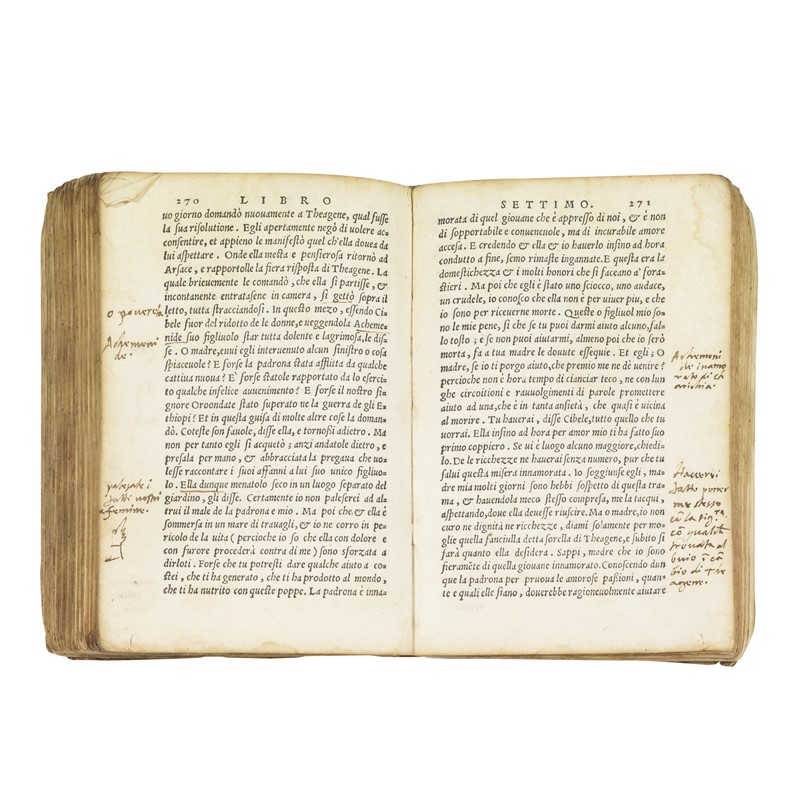 270 LIBRO
uo giorno domandò nuouamente a Theagene, qual fusse
la sua risolutione. Egli apertamente negò di volere ac
consentire, et appieno le manifestò quel ch'ella douea da
lui aspettare. Onde ella mesta e pensierosa ritornò ad
Arsace, e rapportolle la fiera risposta di Theagene. La
quale brieuemente le comandò, che ella si partisse, &
incontanente entratasene in camera, si gettò sopra il
letto, tutta stracciandosi. In questo mezo, essendo Ci
bele fuor del ridotto de le donne, e ueggendola Acheme
nide suo figliuolo star tutta dolente e lagrimosa, le dis
se. O madre, euui egli interuenuto alcun sinistro o cosa
spiaceuole? E forse la padrona stata afflitta da qualche
cattiua nuoua? E' forse statole rapportato da lo eserci
to qualche infelice auuenimento? E forse il nostro si
gnore Oroondate stato superato ne la guerra de gli E
thiopi? Et in questa guisa di molte altre cose la doman
dò. Coteste son fauole, disse ella, e tornossi adietro. Ma
non per tanto egli si acquetò; anzi andatole dietro, e
presala per mano, & abbracciata la pregaua che uo
lesse raccontare i suoi affanni a lui suo unico figliuo
lo. Ella dunque menatolo seco in un luogo separato del
giardino, gli disse. Certamente io non paleserei ad al
trui il male de la padrona e mio. Ma poi che & ella è
sommersa in un mare di trauagli, & io ne corro in pe
ricolo de la uita (percioche io so che ella con dolore e
con furore procederà contra di me) sono sforzata a
dirloti. Forse che tu potresti dare qualche aiuto a co
stei, che ti ha generato, che ti ha prodotto al mondo,
che ti ha nutrito con queste poppe. La padrona è inna=
Achemeni
de.
palesate i
fatti nostri
a femine.
SETTIMO. 271
morata di quel giouane che è appresso di noi, & è non
di sopportabile e conueneuole, ma di incurabile amore
accesa. E credendo & ella & io hauerlo insino ad hora
condutto a fine, semo rimaste ingannate. E questa era la
domestichezza & i molti honori che si faceano a' fora=
stieri. Ma poi che egli è stato uno sciocco, uno audace,
un crudele, io conosco che ella non è per uiuer piu, e che
io sono per riceuerne morte. Queste o figliuol mio so=
no le mie pene, sì che se tu puoi darmi aiuto alcuno, fal=
lo tosto; e se non puoi aiutarmi, almeno poi che io serò
morta, fa a tua madre le douute essequie. Et egli; O
madre, se io ti porgo aiuto, che premio me ne dè uenire?
percioche non è hora tempo di cianciar teco, ne con lun
ghe circoitioni e rauuolgimenti di parole promettere
aiuto ad una, che è in tanta ansietà, che quasi è uicina
al morire. Tu hauerai, disse Cibele, tutto quello che tu
uorrai. Ella insino ad hora per amor mio ti ha fatto suo
primo coppiero. Se ui è luogo alcuno maggiore, chiedi=
lo. De le ricchezze ne hauerai senza numero, pur che tu
salui questa misera innamorata. Io soggiunse egli, ma=
dre mia molti giorni sono hebbi sospetto di questa tra=
ma, & hauendola meco stesso compresa, me la tacqui,
aspettando, doue ella deuesse riuscire. Ma o madre, io non
curo ne dignità ne ricchezze, diami solamente per mo=
glie quella fanciulla detta sorella di Theagene, e subito si
farà quanto ella desidera. Sappi, madre che io sono
fieramẽte di quella giouane innamorato. Conoscendo dun
que la padrona per pruoua le amorose passioni, quan=
te e quali elle siano, douerebbe ragioneuolmente aiutare
Achemeni
de inamo
rato di ch
ariclia.